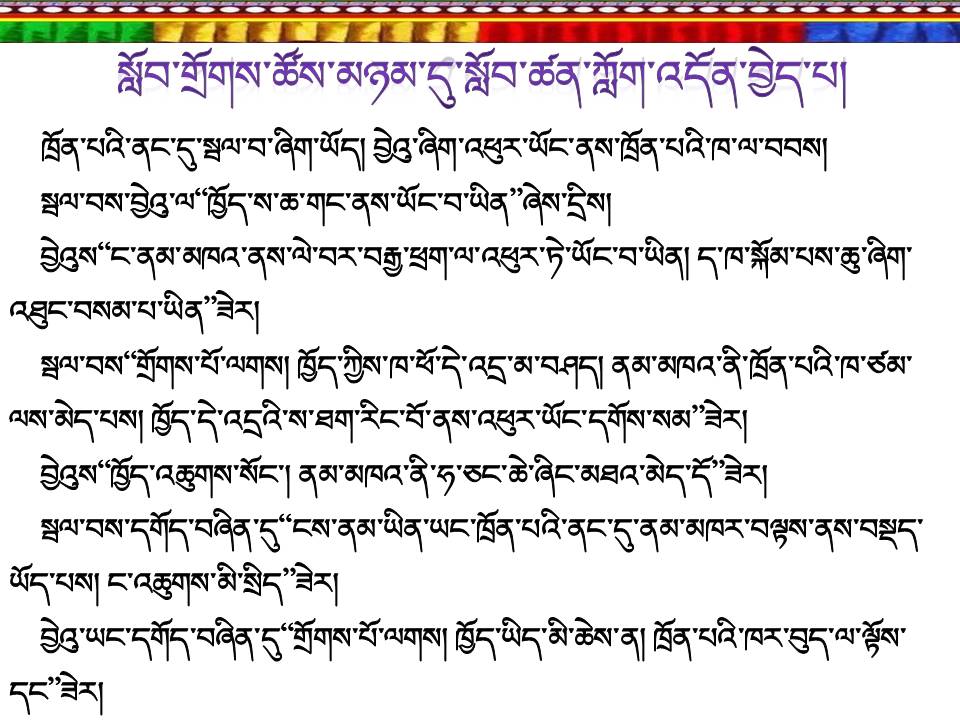 སློབ་གྲོགས་ཚོས་མཉམ་དུ་སློབ་ཚན་ཀློག་འདོན་བྱེད་པ།
ཁྲོན་པའི་ནང་དུ་སྦལ་བ་ཞིག་ཡོད། བྱེའུ་ཞིག་འཕུར་ཡོང་ནས་ཁྲོན་པའི་ཁ་ལ་བབས།
སྦལ་བས་བྱེའུ་ལ“ཁྱོད་ས་ཆ་གང་ནས་ཡོང་བ་ཡིན”ཞེས་དྲིས།
བྱེའུས“ང་ནམ་མཁའ་ནས་ལེ་བར་བརྒྱ་ཕྲག་ལ་འཕུར་ཏེ་ཡོང་བ་ཡིན། ད་ཁ་སྐོམ་པས་ཆུ་ཞིག་
འཐུང་བསམ་པ་ཡིན”ཟེར།
སྦལ་བས“གྲོགས་པོ་ལགས། ཁྱོད་ཀྱིས་ཁ་ཕོ་དེ་འདྲ་མ་བཤད། ནམ་མཁའ་ནི་ཁྲོན་པའི་ཁ་ཙམ་
ལས་མེད་པས། ཁྱོད་དེ་འདྲའི་ས་ཐག་རིང་བོ་ནས་འཕུར་ཡོང་དགོས་སམ”ཟེར།
བྱེའུས“ཁྱོད་འཆུགས་སོང་། ནམ་མཁའ་ནི་ཧ་ཅང་ཆེ་ཞིང་མཐའ་མེད་དོ”ཟེར།
སྦལ་བས་དགོད་བཞིན་དུ“ངས་ནམ་ཡིན་ཡང་ཁྲོན་པའི་ནང་དུ་ནམ་མཁར་བལྟས་ནས་བསྡད་
ཡོད་པས། ང་འཆུགས་མི་སྲིད”ཟེར།
བྱེའུ་ཡང་དགོད་བཞིན་དུ“གྲོགས་པོ་ལགས། ཁྱོད་ཡིད་མི་ཆེས་ན། ཁྲོན་པའི་ཁར་བུད་ལ་ལྟོས་
དང”ཟེར།